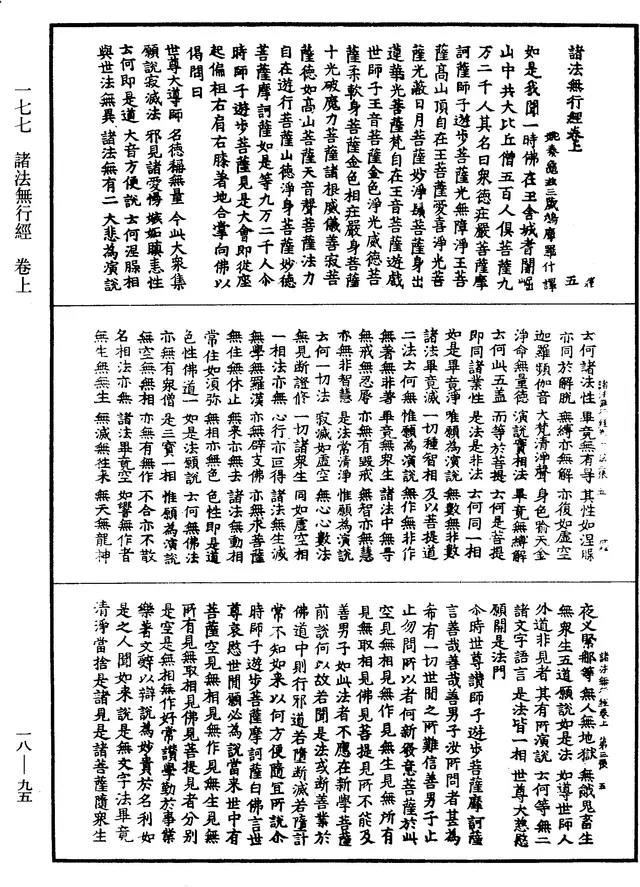 諸法無行經卷上
姚秦龜茲三藏鳩摩羅什譯
如是我聞一時佛在王舍城耆闍崛
山中共大比丘僧五百人俱菩薩九
万二千人其名曰衆德莊嚴菩薩摩
訶薩師子遊步菩薩光無障淨王菩
薩高山頂自在王菩薩愛喜淨光菩
薩光蔽日月菩薩妙淨鬚菩薩身出
蓮華光菩薩梵自在王音菩薩遊戲
世師子王音菩薩金色淨光威德菩
薩柔軟身菩薩金色相莊嚴身菩薩
十光破魔力菩薩諸根威儀善寂菩
薩德如高山菩薩天音聲菩薩法力
自在遊行菩薩山德淨身菩薩妙德
菩薩摩訶薩如是等九万二千人尒
時師子遊步菩薩見是大會即從座
起偏袒右肩右膝著地合掌向佛以
偈問曰
世尊大導師 名德稱無量 今此大衆集
願說寂滅法 邪見諸愛慢 嫉妬瞋恚性
云何即是道 大音方便說 云何涅槃相
與世法無異 諸法無有二 大悲為演說
云何諸法性 畢竟無有等 其性如涅槃
亦同於解脫 無縛亦無解 亦復如虛空
迦羅頻伽音 大梵清淨聲 身色猶天金
淨命無量德 演說實相法 畢竟無縛解
云何此五蓋 而等於菩提 云何是菩提
即同諸業性 是法是非法 云何同一相
如是畢竟淨 唯願為演說 無數無非數
諸法畢竟滅 一切種智相 及以菩提道
二法云何無 惟願為演說 無作無非作
無著無非著 畢竟無衆生 諸法中無导
無戒無忍辱 亦無有毀戒 無智亦無慧
亦無非智慧 是法常清淨 惟願為演說
云何一切法 寂滅如虛空 無心心數法
無見斷證修 一切諸衆生 同如虛空相
一相法亦無 心行亦叵得 諸法無生滅
無學無羅漢 亦無辟支佛 亦無求菩薩
無住無休止 無來亦無去 諸法無動相
常住如須弥 無相亦無色 色性即是道
色性佛道一 如是法願說 云何無佛法
亦無有衆僧 是三寶一相 惟願為演說
無空無無相 亦無有無作 不合亦不散
名相法亦無 諸法畢竟空 如響無作者
無生無無生 無滅無往來 無天無龍神
夜叉緊那等 無人無地獄 無餓鬼畜生
無衆生五道 願說如是法 如導世師人
外道非見者 其有所演說 云何等無二
諸文字語言 是法皆一相 世尊大慈愍
願開是法門
尒時世尊讚師子遊步菩薩摩訶薩
言善哉善哉善男子汝所問者甚為
希有一切世間之所難信善男子止
止勿問所以者何新發意菩薩於此
空見無相見無作見無生見無所有
見無取相見佛見菩提見所不能及
善男子如此法者不應在新學菩薩
前說何以故若聞是法或斷善業於
佛道中則行邪道若隨斷滅若隨計
常不知如來以何方便隨宜所說尒
時師子遊步菩薩摩訶薩白佛言世
尊哀愍世間願必為說當來世中有
菩薩空見無相見無作見無生見無
所有見無取相見佛見菩提見者分別
是空是無相無作好常讚學勤於事業
樂著文辭以辯說為妙貴於名利如
是之人聞如來說是無文字法畢竟
清淨當捨是諸見是諸菩薩隨衆生
一七七 諸法無行經 卷上
一八—九五